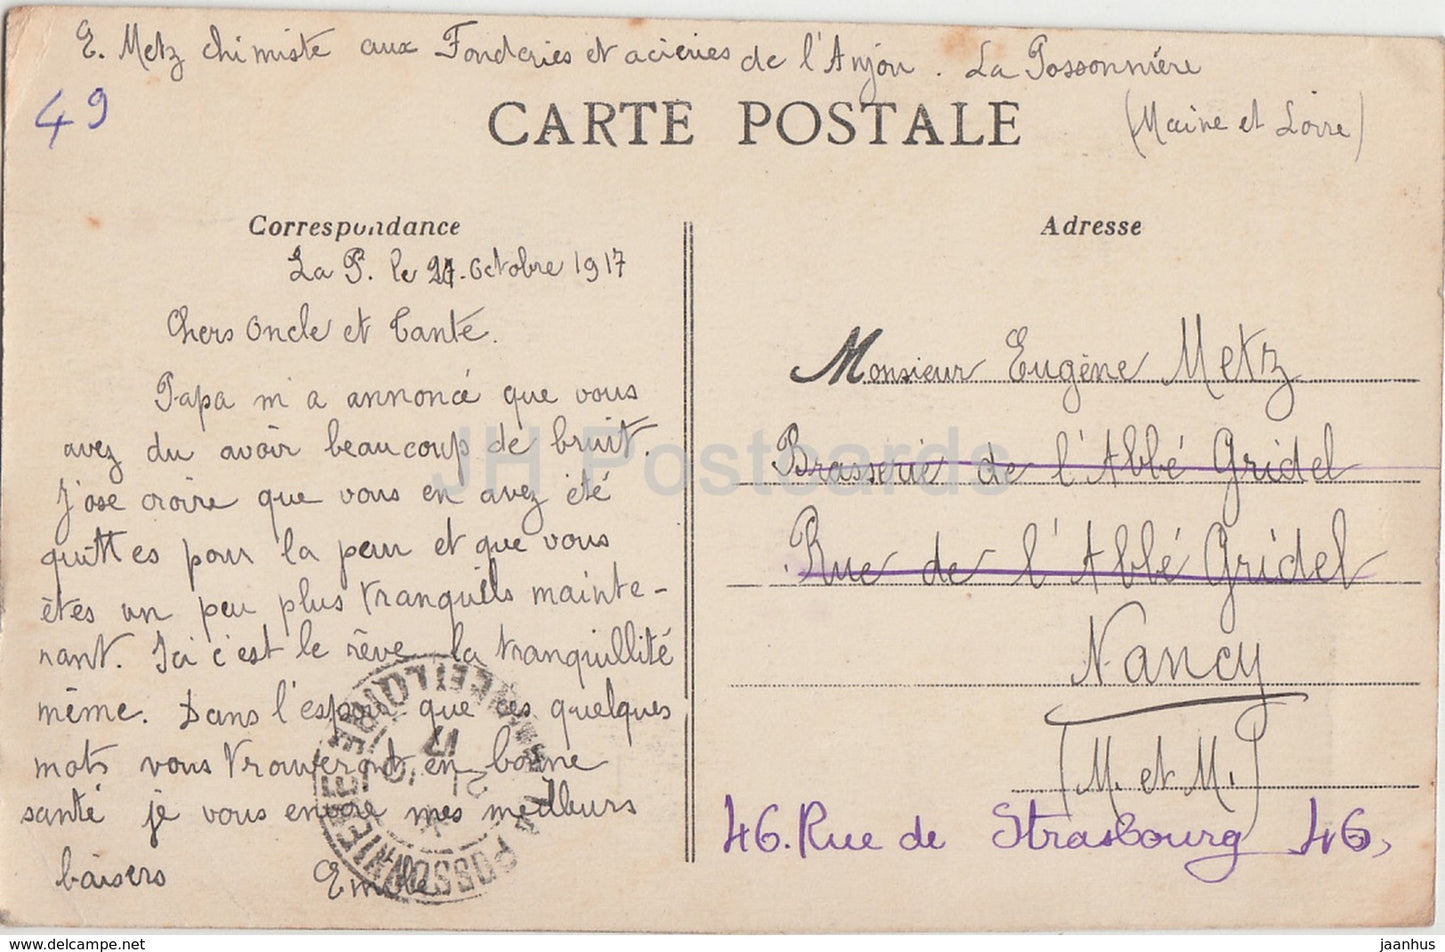 E. Metz chimiste aux Fonderies et acieries de l'Anjou. La Possonnière
(Maine et Loire)
49
CARTE POSTALE
Correspondance
La P. le 21. Octobre 1917
Chers Oncle et Tante.
Papa m a annoncé que vous
avez du avoir beaucoup de bruit.
J'ose croire que vous en avez été
quittes pour la peur et que vous
êtes un peu plus tranquils mainte-
nant. Ici c'est le rêve, la tranquillité
même. Dans l'espoir que ces quelques
mots vous trouveront en bonne
santé je vous envoie mes meilleurs
baisers Emile
Adresse
Monsieur Eugène Metz
Brasserie de l'Abbé Gridel
Rue de l'Abbé Gridel
Nancy
(M. et M.)
46. Rue de Strasbourg 46,
JH Postcards
POSSONNIERE
21
17
delcampe.net
jaanhus